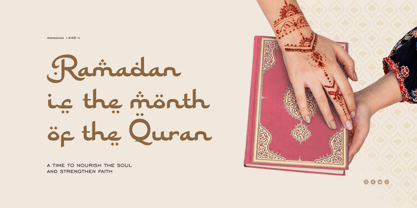 Ramadan
is the month
of the Quran
A TIME TO NOURISH THE SOUL
AND STRENGTHEN FAITH